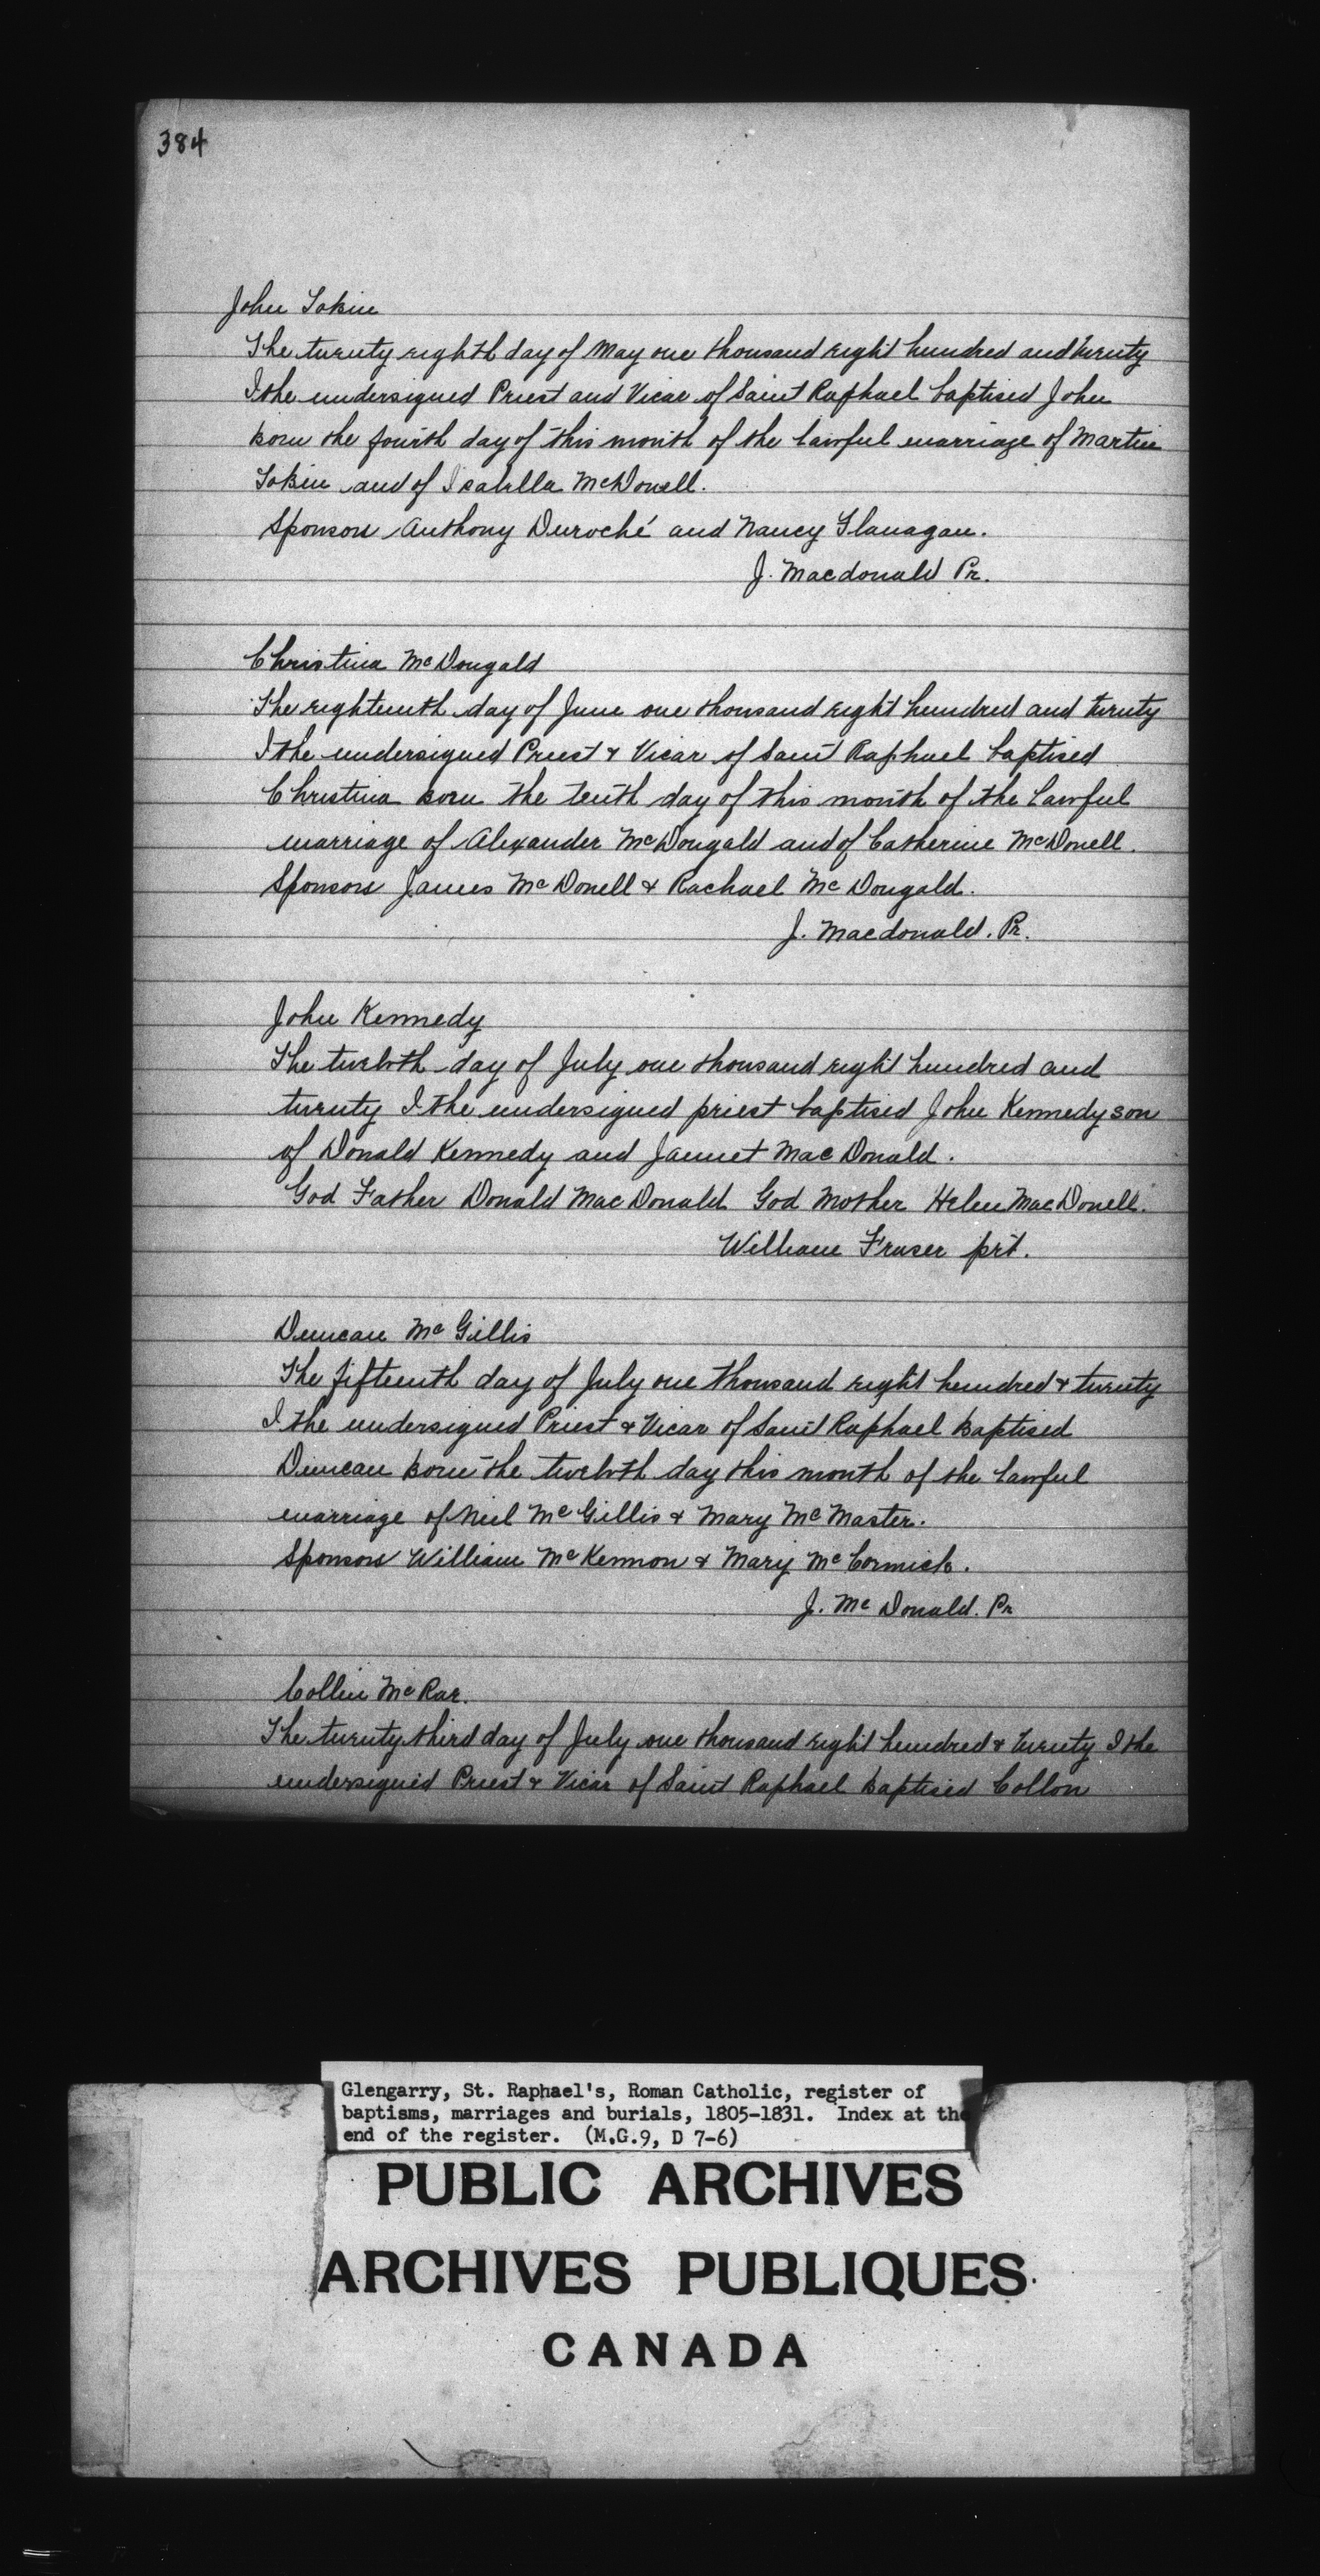 384
John Tobin
The twenty eighth day of May one thousand eight hundred and twenty
I the undersigned Priest and Vicar of Saint Raphael baptised John
born the fourth day of this month of the lawful marriage of Martin
Tobin and of Isabella McDonell.
Sponsors Anthony Duroché and Nancy Flanagan.
J. Macdonald Pr.
Christina McDougald
The eighteenth day of June one thousand eight hundred and twenty
I the undersigned Priest & Vicar of Saint Raphael baptised
Christina born the tenth day of this month of the lawful
marriage of Alexander McDougald and of Catherine McDonell.
Sponsors James McDonell & Rachael McDougald.
J. Macdonald. Pr.
John Kennedy
The twelvth day of July one thousand eight hundred and
twenty I the undersigned priest baptised John Kennedy son
of Donald Kennedy and Jannet MacDonald.
God Father Donald MacDonald God Mother Helen MacDonell.
William Fraser prt.
Duncan McGillis
The fifteenth day of July one thousand eight hundred & twenty
I the undersigned Priest & Vicar of Saint Raphael baptised
Duncan born the twelvth day this month of the lawful
marriage of Neil McGillis & Mary McMaster.
Sponsors William McKennon & Mary McCormick.
J. McDonald. Pr
Collin McRae.
The twenty third day of July one thousand eight hundred & twenty I the
undersigned Priest & Vicar of Saint Raphael baptised Collon
Glengarry, St. Raphael's, Roman Catholic, register of
baptisms, marriages and burials, 1805-1831. Index at the
end of the register. (M.G.9, D 7-6)
PUBLIC ARCHIVES
ARCHIVES PUBLIQUES
CANADA